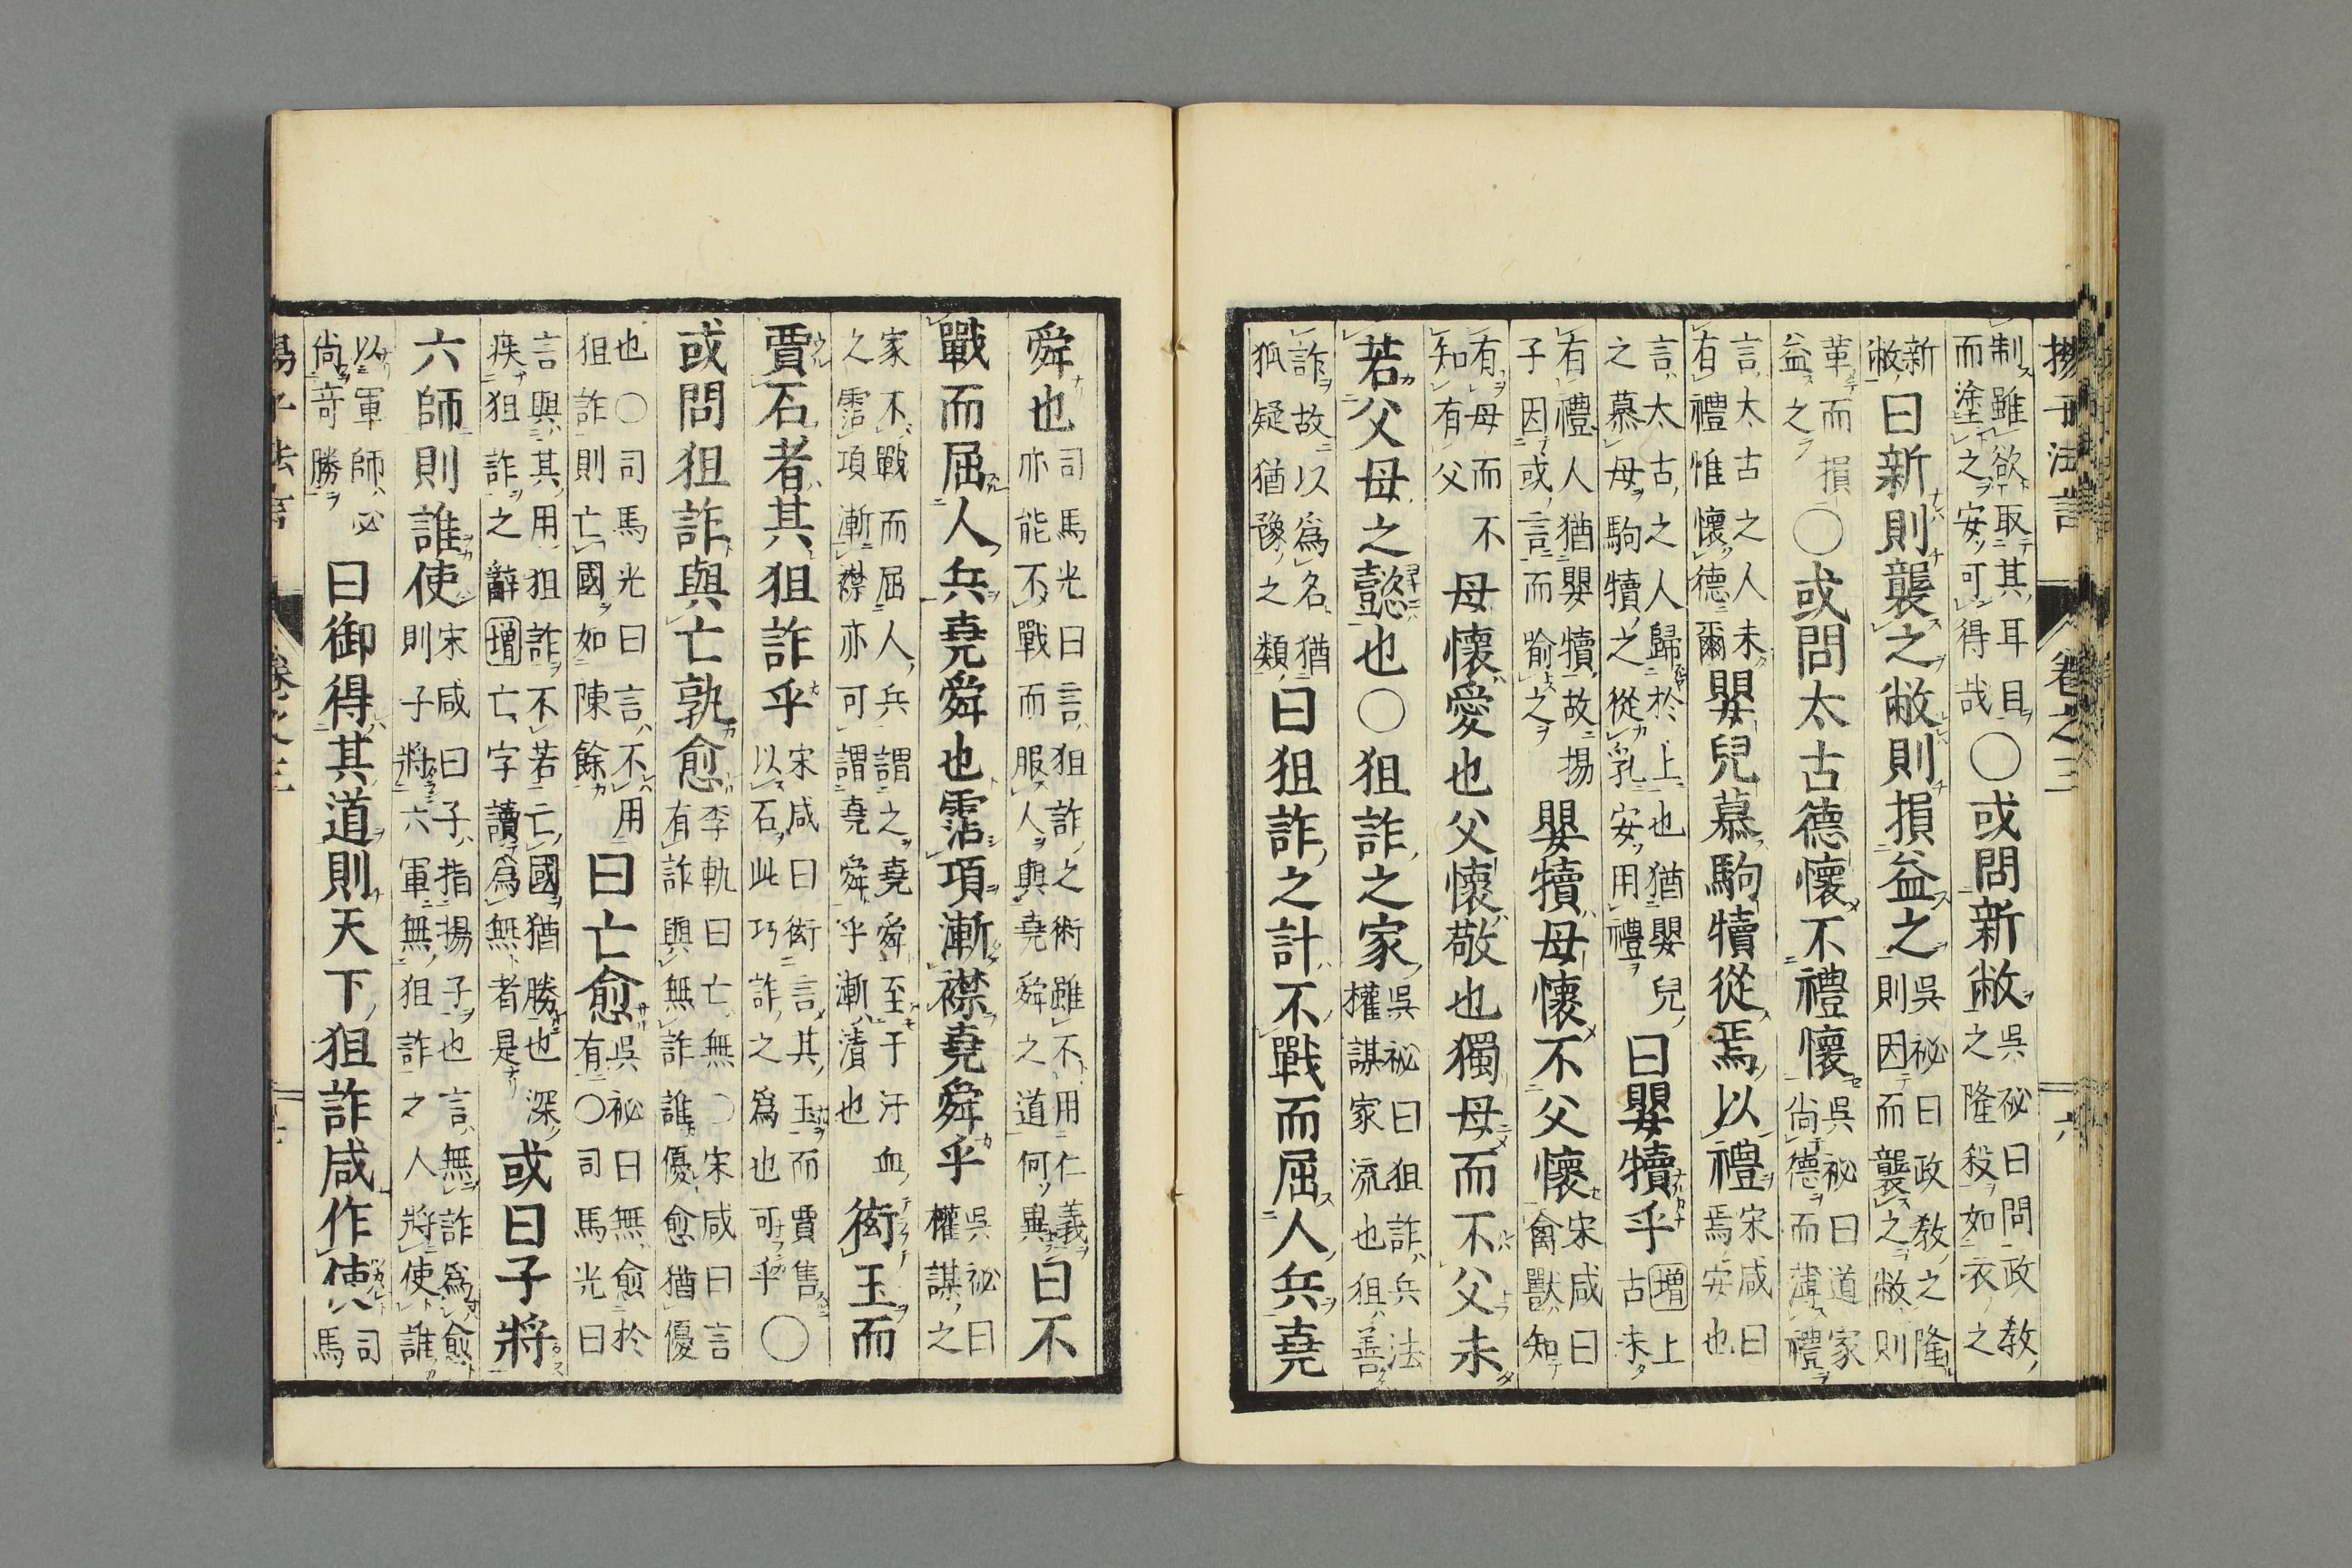 揚子法言 卷之三 六
制雖欲取其耳目
而塗之安可得哉
〇或問新敝
吳祕曰問政教
之隆殺如衣之
新
敝
曰新則襲之敝則損益之
吳祕曰政教之隆
則因而襲之敝則
革而損
益之
〇或問太古德懷不禮懷
吳祕曰道家
尚德而薄禮
言太古之人未
有禮惟懷德爾
嬰兒慕駒犢從焉以禮
宋咸曰
焉安也
言太古之人歸於上也猶嬰兒
之慕母駒犢之從乳安用禮
曰嬰犢乎
增上
古未
有禮人猶嬰犢故揚
子因或言而喻之
嬰犢母懷不父懷
宋咸曰
禽獸知
有母而不
知有父
母懷愛也父懷敬也獨母而不父未
若父母之懿也〇狙詐之家
吳祕曰狙詐兵法
權謀家流也狙善
詐故以爲名猶
狐疑猶豫之類
曰狙詐之計不戰而屈人兵堯
舜也
司馬光曰言狙詐之術雖不用仁義
亦能不戰而服人與堯舜之道何異
曰不
戰而屈人兵堯舜也霑項漸襟堯舜乎
吳祕曰
權謀之
家不戰而屈人兵謂之堯舜至于汙血
之霑項漸襟亦可謂堯舜乎漸漬也
衒玉而
賈石者其狙詐乎
宋咸曰衒言其玉而賈售
以石此巧詐之爲也可乎
〇
或問狙詐與亡孰愈
李軌曰亡無〇宋咸曰言
有詐與無詐誰優愈猶優
也〇司馬光曰言不用
狙詐則亡國如陳餘
曰亡愈
吳祕曰無愈於
有〇司馬光曰
言與其用狙詐不若亡國猶勝也深
疾狙詐之辭增亡字讀爲無者是
或曰子將
六師則誰使
宋咸曰子指揚子也言無詐爲愈
則子將六軍無狙詐之人將使誰
以軍師必
尚奇勝
曰御得其道則天下狙詐咸作使
司
馬